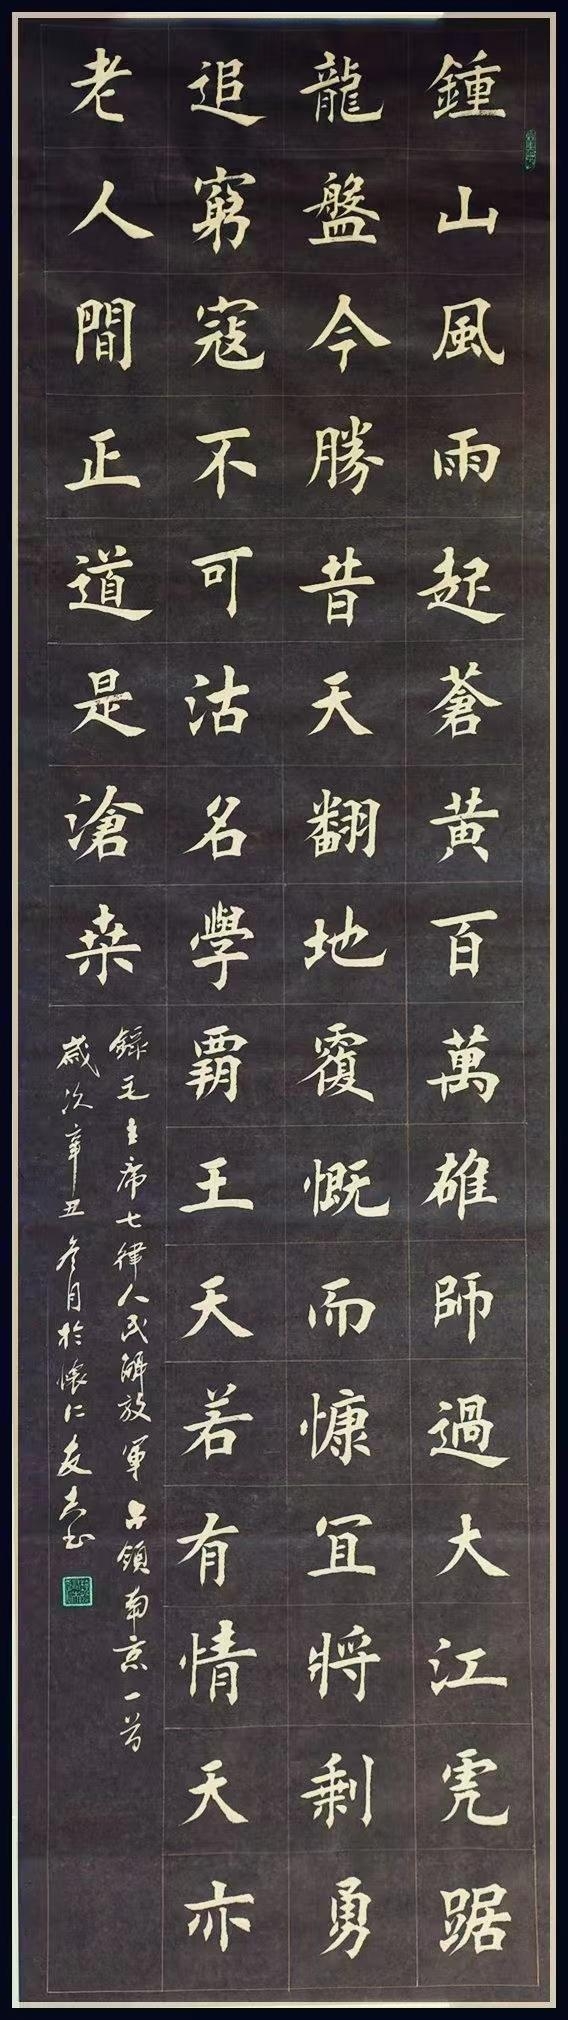 鍾山風雨起蒼黄百萬雄師過大江虎踞
龍盤今勝昔天翻地覆慨而慷宜將剩勇
追窮寇不可沽名學霸王天若有情天亦
老人間正道是滄桑
錄毛主席七律人民解放軍占領南京一首
歲次辛丑冬月於懷仁友志书